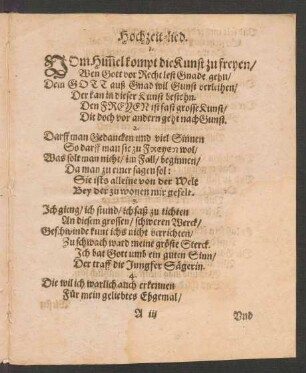 Hochzeit-lied.
1.
VOm Himmel kompt die Kunst zu freyen/
Wen Gott vor Recht lest Gnade gehn/
Dem GOTT auß Gnad wil Gunst verleihen/
Der kan in dieser Kunst bestehn.
Den FREYEN ist fast grosse Kunst/
Die doch vor andern geht nach Gunst.
2.
Darff man Gedancken und viel Sinnen
So darff man sie zu Freyen wol/
Was solt man nicht/ im Fall/ beginnen/
Da man zu einer sagen sol:
Sie ists alleine von der Welt
Bey der zu wonen mir gefelt.
3.
Ich gieng/ ich stund/ ich saß zu tichten
An diesem grossen/ schweren Werck/
Geschwinde kunt ichs nicht verrichten/
Zu schwach ward meine gröste Sterck.
Ich bat Gott umb ein guten Sinn/
Der traff die Jungfer Sägerin.
4.
Die wil ich warlich auch erkennen
Für mein geliebtes Ehgemal/
A iij
Vnd